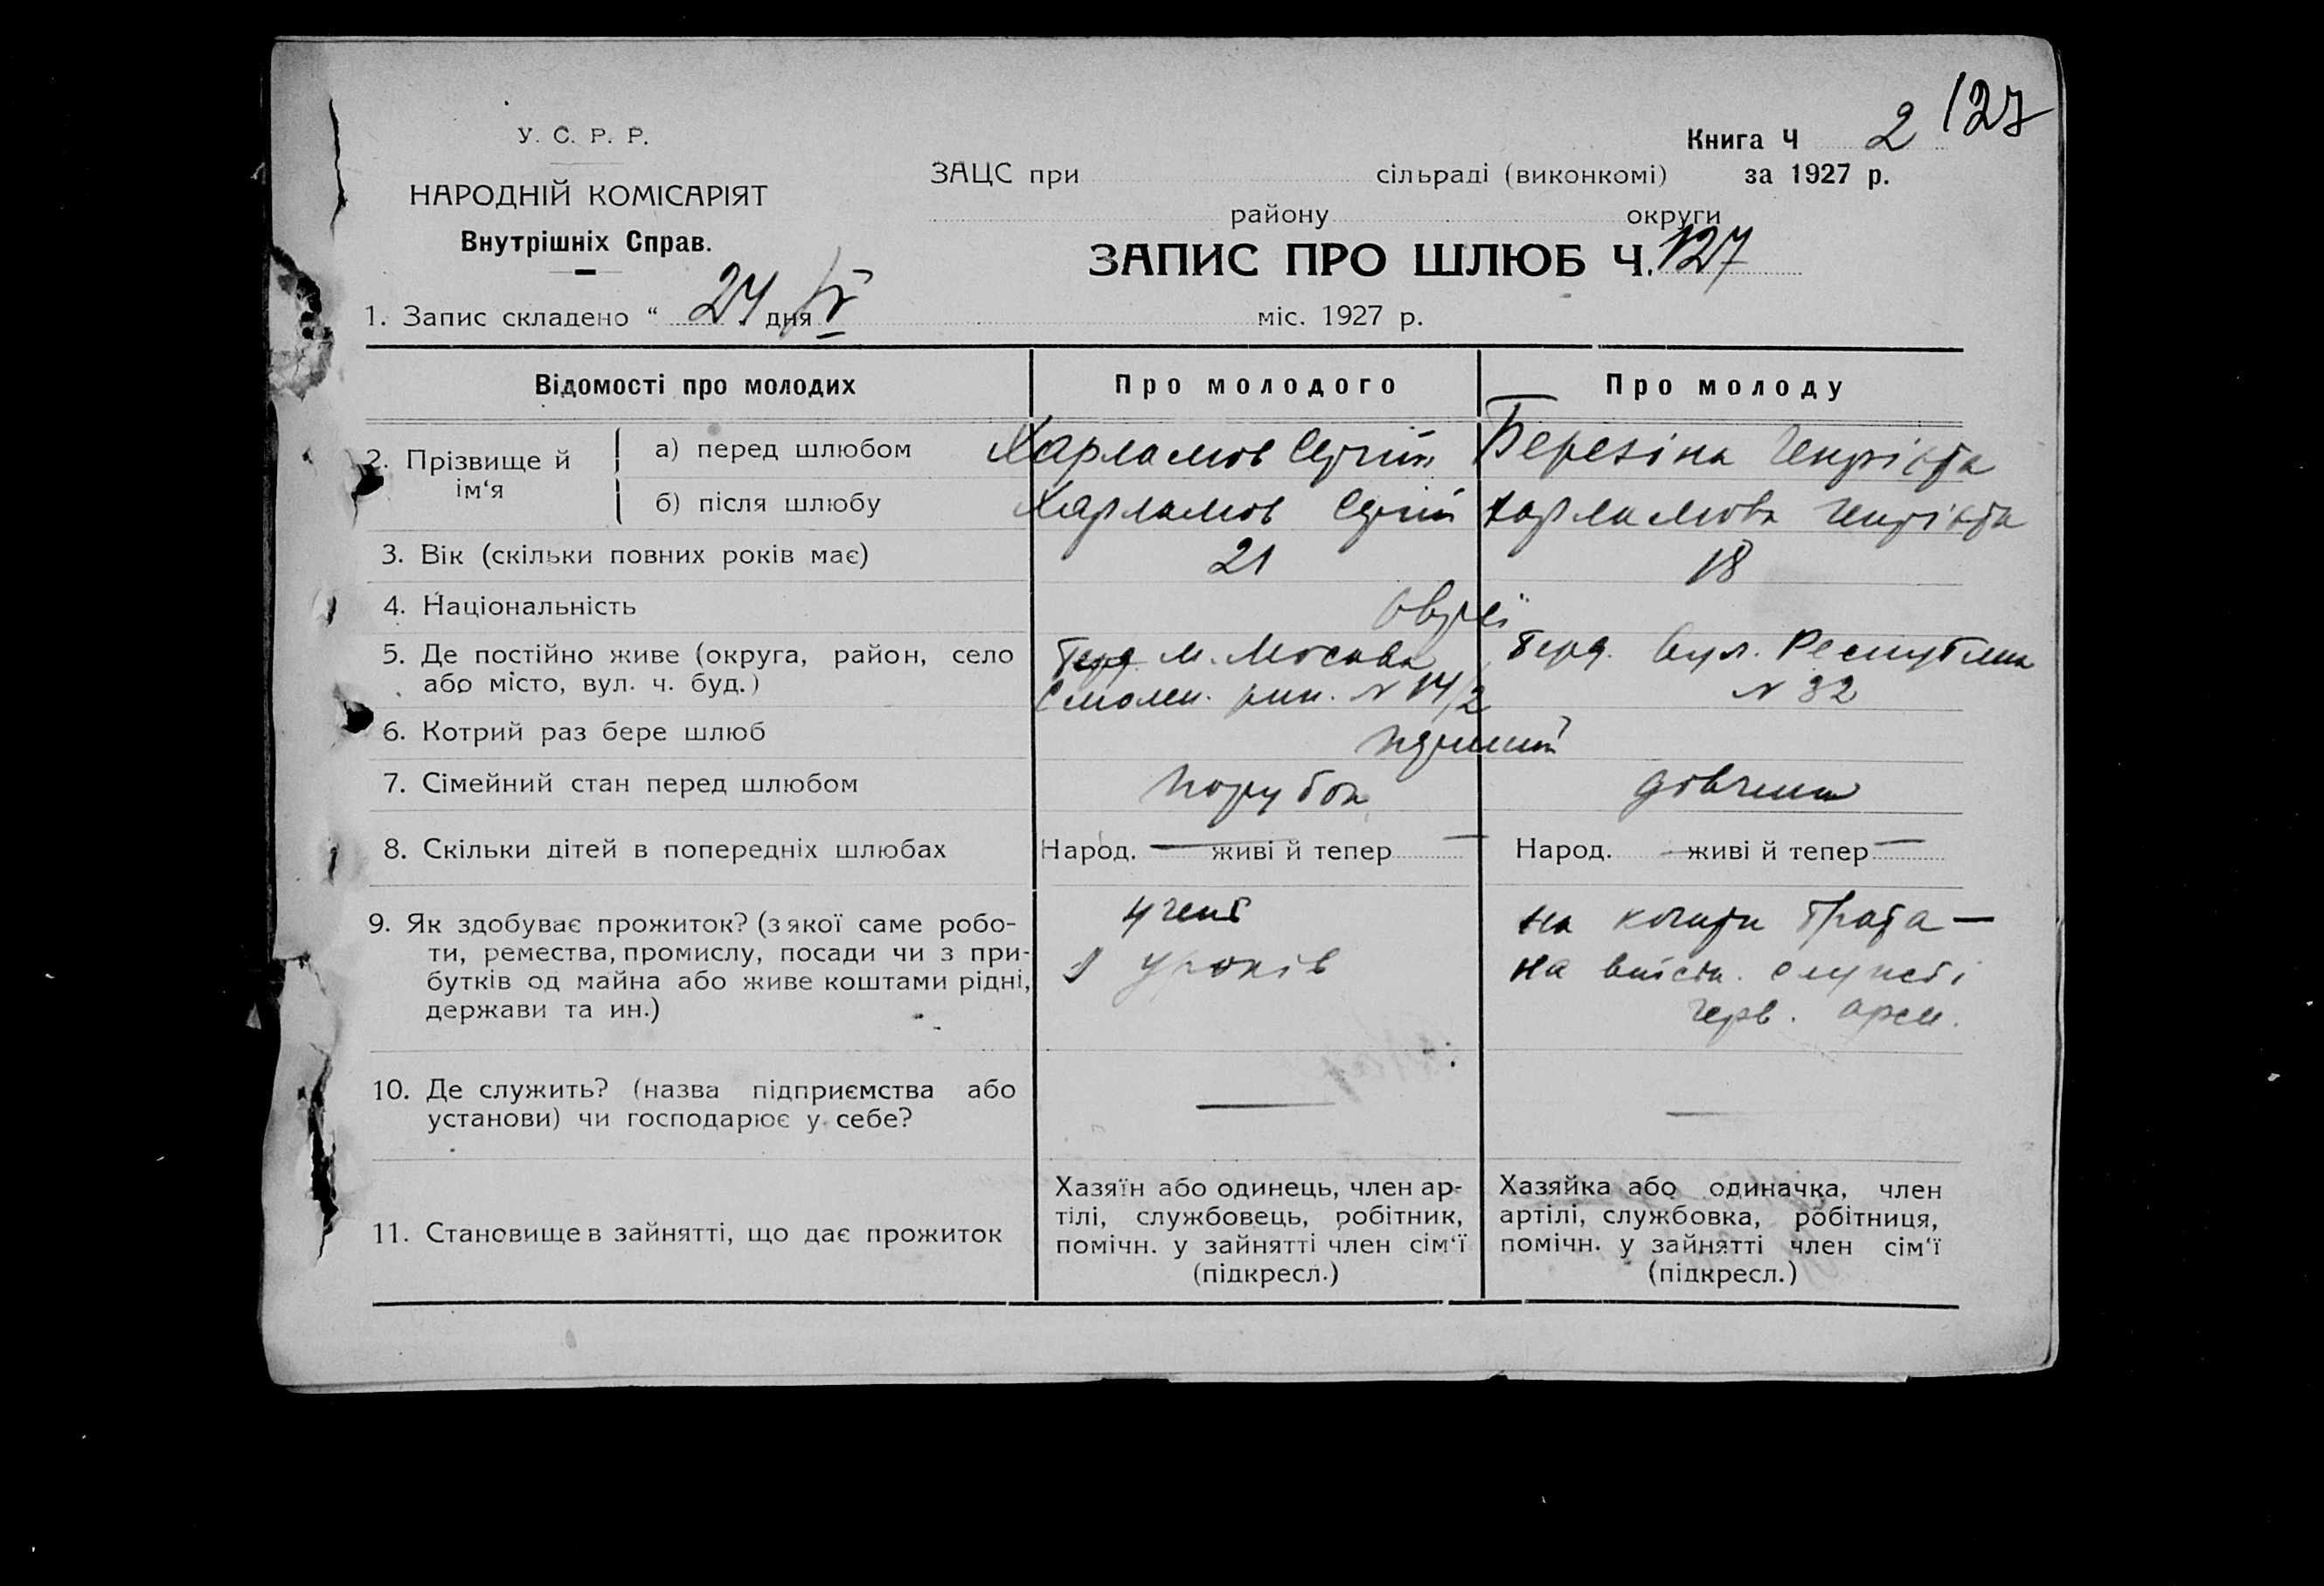 У. С. Р. Р.
НАРОДНІЙ КОМІСАРІЯТ
Внутрішніх Справ.
Книга Ч 2 127
ЗАЦС при сільраді (виконкомі) за 1927 р.
району округи
ЗАПИС ПРО ШЛЮБ Ч. 127
1. Запис складено “ 24 дня V міс. 1927 р.
Відомості про молодих Про молодого Про молоду
2. Прізвище й ім‘я
а) перед шлюбом Харламов Сергій Березіна Генрієта
б) після шлюбу Харламов Сергій Харламова Генрієта
3. Вік (скільки повних років має) 21 18
4. Національність Євреї
5. Де постійно живе (округа, район, село м. Москва Берд. вул. Республіки
або місто, вул. ч. буд.) Смолен. рин. № 14/2 № 32
6. Котрий раз бере шлюб перший
7. Сімейний стан перед шлюбом парубок дівчина
8. Скільки дітей в попередніх шлюбах Народ. — живі й тепер — Народ. — живі й тепер —
9. Як здобуває прожиток? (з якої саме робо- учень на кошти брата —
ти, ремества, промислу, посади чи з при- з уроків на військ. службі
бутків од майна або живе коштами рідні, черв. арм.
держави та ин.)
10. Де служить? (назва підприємства або — —
установи) чи господарює у себе?
11. Становище в зайнятті, що дає прожиток
Хазяїн або одинець, член ар-
тілі, службовець, робітник,
помічн. у зайнятті член сім‘ї
(підкресл.)
Хазяйка або одиначка, член
артілі, службовка, робітниця,
помічн. у зайнятті член сім‘ї
(підкресл.)